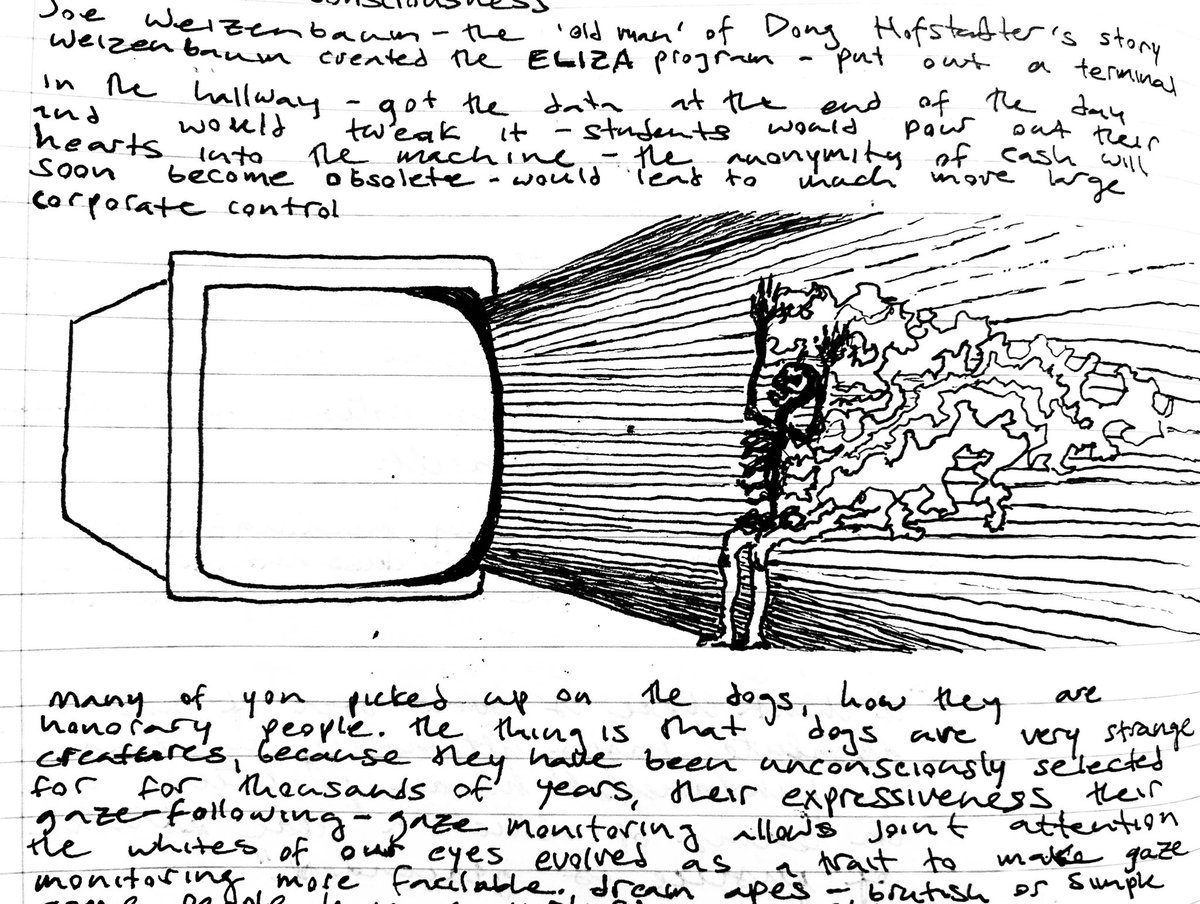 consciousness
Joe Weizenbaum - the 'old man' of Doug Hofstadter's story
Weizenbaum created the ELIZA program - put out a terminal
in the hallway - got the data at the end of the day
and would tweak it - students would pour out their
hearts into the machine - the anonymity of cash will
soon become obsolete - would lead to much more large
corporate control
many of you picked up on the dogs, how they are
honorary people. the thing is that dogs are very strange
creatures, because they have been unconsciously selected
for for thousands of years, their expressiveness their
gaze-following - gaze monitoring allows joint attention
the whites of our eyes evolved as a trait to make gaze
monitoring more facilable. dream apes - brutish or simple
some people